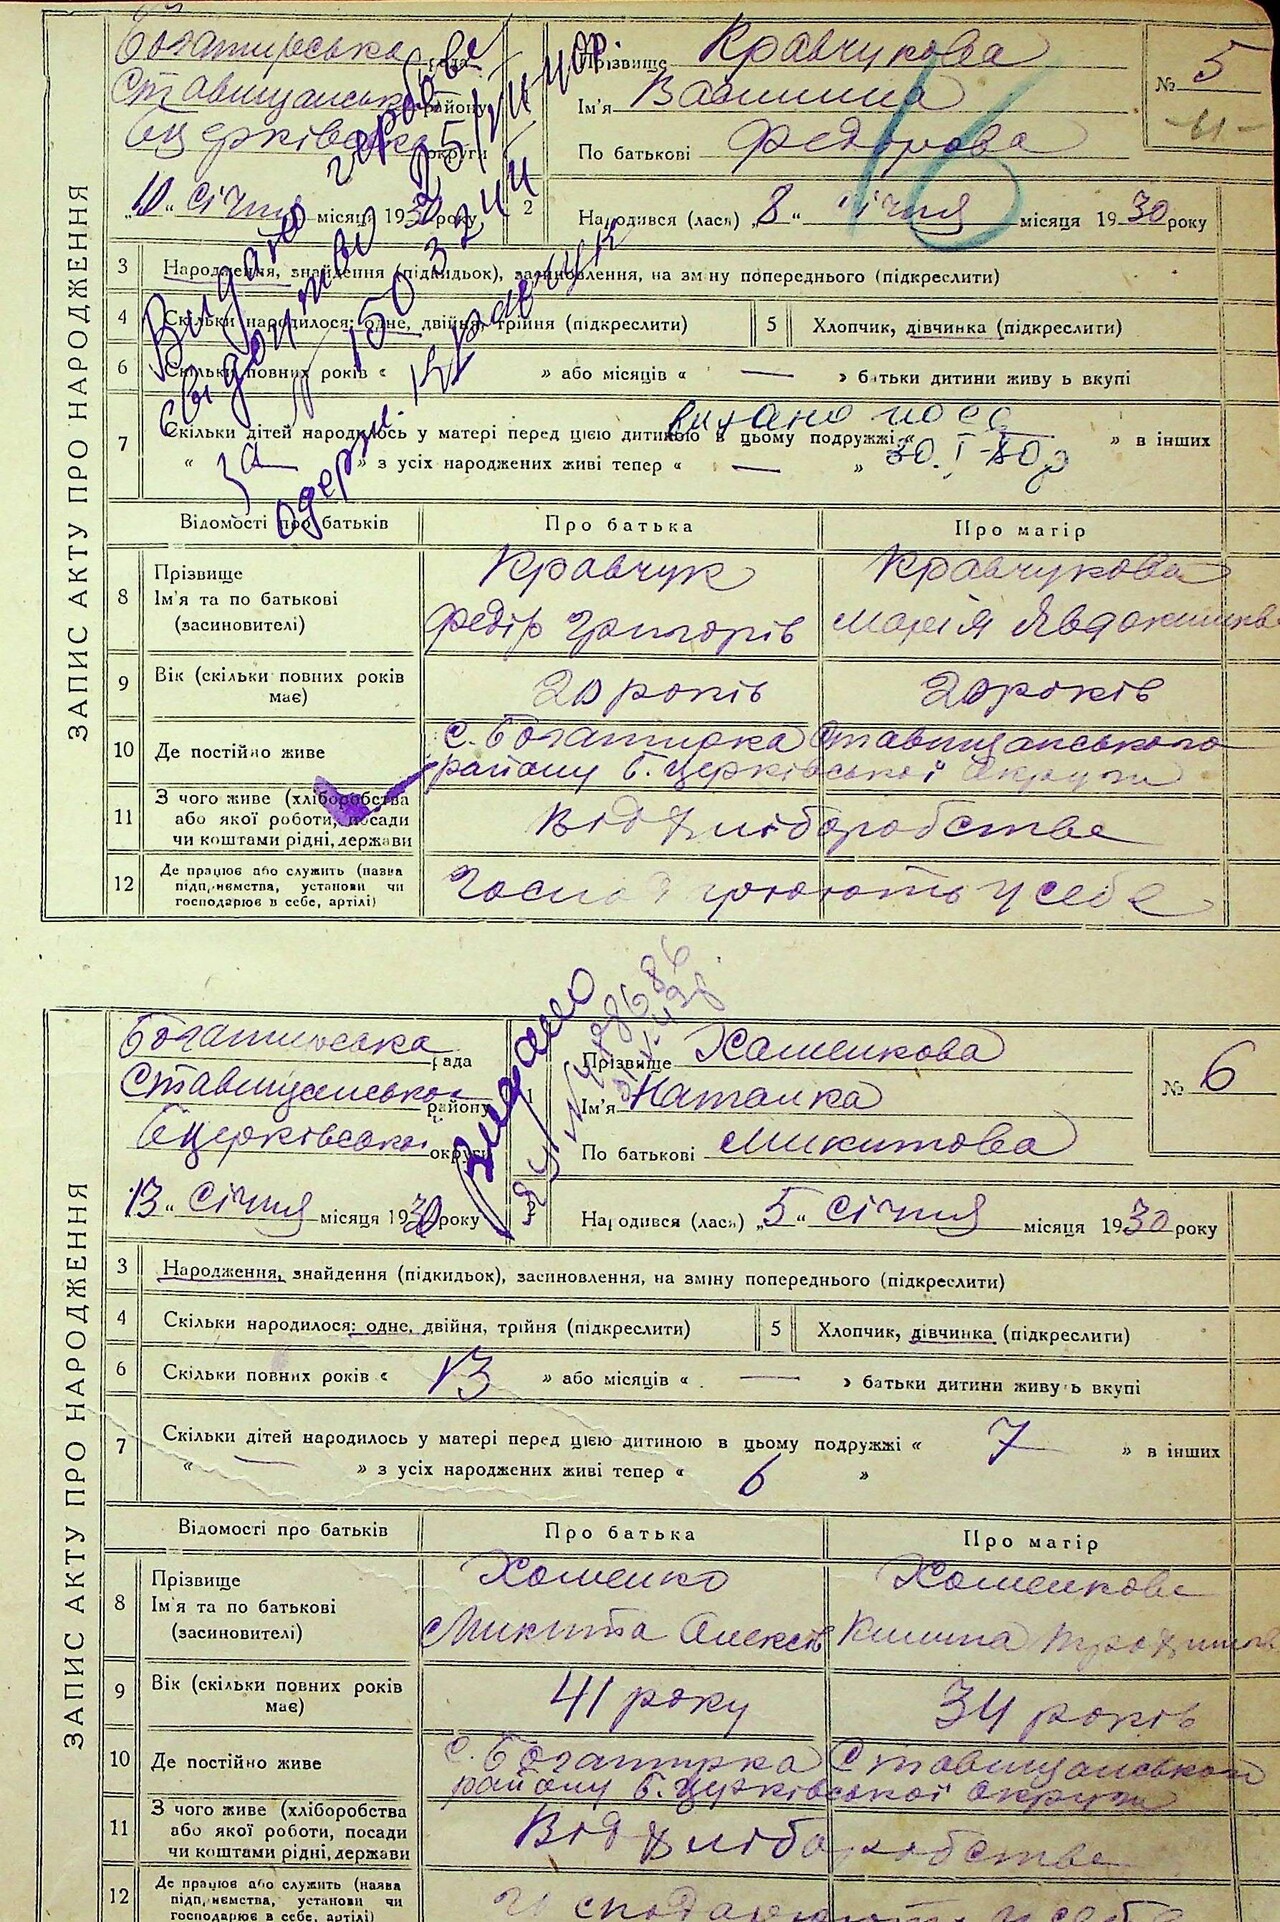 ЗАПИС АКТУ ПРО НАРОДЖЕННЯ
Богатирська рада
Ставищанськ району
Бцерківськ округи
„10“ січня місяця 1930 року
Прізвище Кравчукова
Ім'я
По батькові Федорова
№ 5
-11-
16
2 Народився (лася) „8“ січня місяця 1930 року
3 Народження, знайдення (підкидьок), засиновлення, на зміну попереднього (підкреслити)
4 Скільки народилося: одне, двійня, трійня (підкреслити)
5 Хлопчик, дівчинка (підкреслити)
6 Скільки повних років « » або місяців « — » батьки дитини живуть вкупі
7 Скільки дітей народилось у матері перед цією дитиною в цьому подружжі « — » в інших
« — » з усіх народжених живі тепер « — »
Видано
свідоцтво
за №
одерж. Кравчук
видано посв
30.I-30р
Відомості про батьків Про батька Про матір
8 Прізвище Кравчук Кравчукова
Ім'я та по батькові Федір Григорів Марія
(засиновителі)
9 Вік (скільки повних років має) 20 років 20 років
10 Де постійно живе с. Богатирка Ставищанського
району Б. Церківської округи
11 З чого живе (хліборобства
або якої роботи, посади Від хліборобства
чи коштами рідні, держави
12 Де працює або служить (назва
підприємства, установи чи у себе
господарює в себе, артілі)
ЗАПИС АКТУ ПРО НАРОДЖЕННЯ
Богатирська рада
Ставищанської району
Бцерківської округи
„13“ січня місяця 1930 року
Видано
1 Прізвище Хоменкова
Ім'я Наталка
По батькові Микитова
№ 6
Народився (лася) „5“ січня місяця 1930 року
3 Народження, знайдення (підкидьок), засиновлення, на зміну попереднього (підкреслити)
4 Скільки народилося: одне, двійня, трійня (підкреслити)
5 Хлопчик, дівчинка (підкреслити)
6 Скільки повних років « 13 » або місяців « — » батьки дитини живуть вкупі
7 Скільки дітей народилось у матері перед цією дитиною в цьому подружжі « 7 » в інших
« — » з усіх народжених живі тепер « 6 »
Відомості про батьків Про батька Про матір
8 Прізвище Хоменко Хоменкова
Ім'я та по батькові Микита Олексів
(засиновителі)
9 Вік (скільки повних років має) 41 року 34 років
10 Де постійно живе с. Богатирка Ставищанського
району Б. Церківської округи
11 З чого живе (хліборобства
або якої роботи, посади Від хліборобства
чи коштами рідні, держави
12 Де працює або служить (назва
підприємства, установи чи господарюють у себе
господарює в себе, артілі)